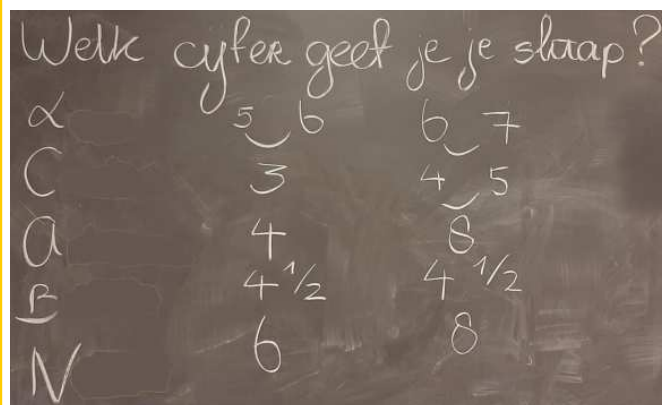 Welk cyfer geef je je slaap?
L 5‿6 6‿7
C 3 4‿5
a 4 8
B 4 1/2 4 1/2
N 6 8